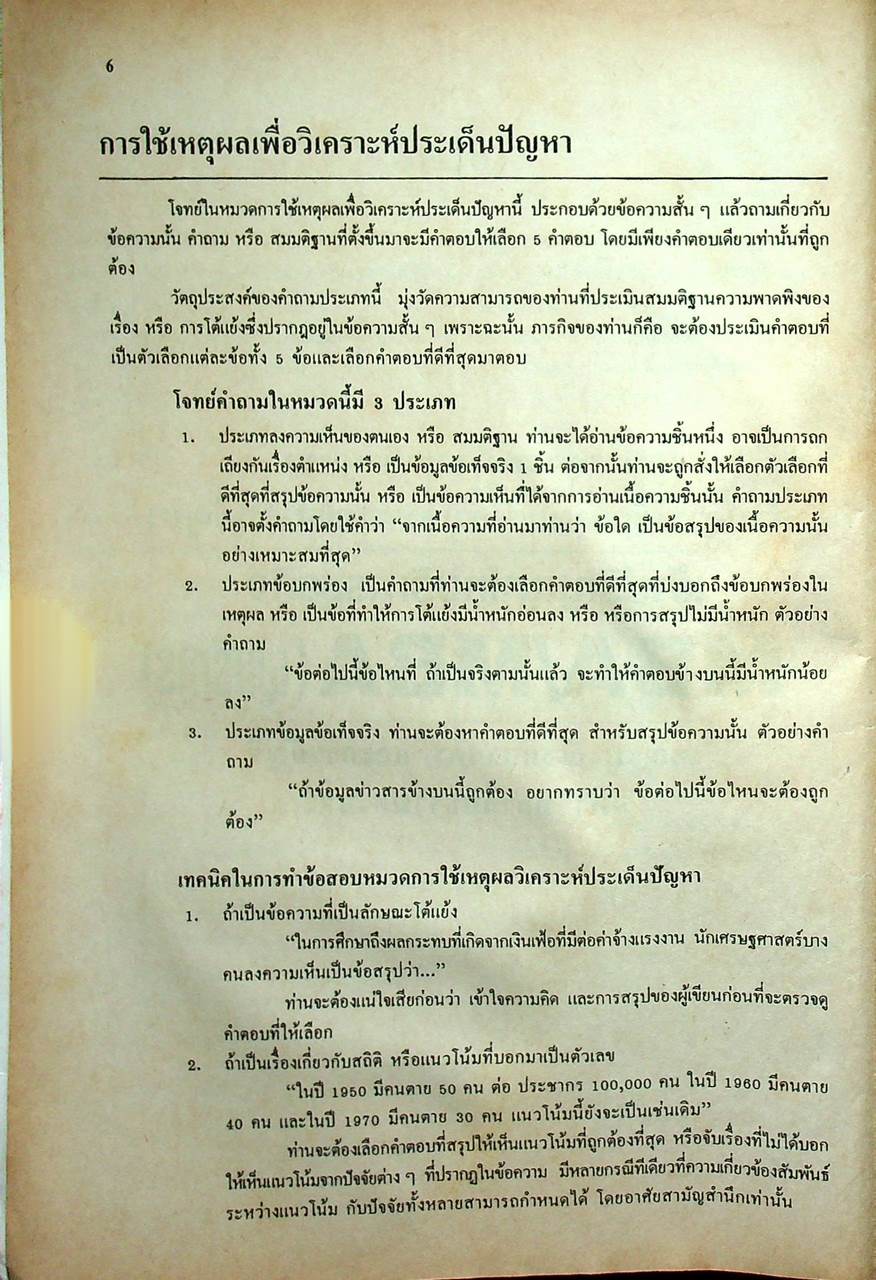 6
การใช้เหตุผลเพื่อวิเคราะห์ประเด็นปัญหา
โจทย์ในหมวดการใช้เหตุผลเพื่อวิเคราะห์ประเด็นปัญหานี้ ประกอบด้วยข้อความสั้น ๆ แล้วถามเกี่ยวกับ
ข้อความนั้น คำถาม หรือ สมมติฐานที่ตั้งขึ้นมาจะมีคำตอบให้เลือก 5 คำตอบ โดยมีเพียงคำตอบเดียวเท่านั้นที่ถูก
ต้อง
วัตถุประสงค์ของคำถามประเภทนี้ มุ่งวัดความสามารถของท่านที่ประเมินสมมติฐานความพาดพิงของ
เรื่อง หรือ การโต้แย้งซึ่งปรากฏอยู่ในข้อความสั้น ๆ เพราะฉะนั้น ภารกิจของท่านก็คือ จะต้องประเมินคำตอบที่
เป็นตัวเลือกแต่ละข้อทั้ง 5 ข้อและเลือกคำตอบที่ดีที่สุดมาตอบ
โจทย์คำถามในหมวดนี้มี 3 ประเภท
1. ประเภทลงความเห็นของตนเอง หรือ สมมติฐาน ท่านจะได้อ่านข้อความชิ้นหนึ่ง อาจเป็นการถก
เถียงกันเรื่องตำแหน่ง หรือ เป็นข้อมูลข้อเท็จจริง 1 ชิ้น ต่อจากนั้นท่านจะถูกสั่งให้เลือกตัวเลือกที่
ดีที่สุดที่สรุปข้อความนั้น หรือ เป็นข้อความเห็นที่ได้จากการอ่านเนื้อความชิ้นนั้น คำถามประเภท
นี้อาจตั้งคำถามโดยใช้คำว่า “จากเนื้อความที่อ่านมาท่านว่า ข้อใด เป็นข้อสรุปของเนื้อความนั้น
อย่างเหมาะสมที่สุด”
2. ประเภทข้อบกพร่อง เป็นคำถามที่ท่านจะต้องเลือกคำตอบที่ดีที่สุดที่บ่งบอกถึงข้อบกพร่องใน
เหตุผล หรือ เป็นข้อที่ทำให้การโต้แย้งมีน้ำหนักอ่อนลง หรือ หรือการสรุปไม่มีน้ำหนัก ตัวอย่าง
คำถาม
“ข้อต่อไปนี้ข้อไหนที่ ถ้าเป็นจริงตามนั้นแล้ว จะทำให้คำตอบข้างบนนี้มีน้ำหนักน้อย
ลง”
3. ประเภทข้อมูลข้อเท็จจริง ท่านจะต้องหาคำตอบที่ดีที่สุด สำหรับสรุปข้อความนั้น ตัวอย่างคำ
ถาม
“ถ้าข้อมูลข่าวสารข้างบนนี้ถูกต้อง อยากทราบว่า ข้อต่อไปนี้ข้อไหนจะต้องถูก
ต้อง”
เทคนิคในการทำข้อสอบหมวดการใช้เหตุผลวิเคราะห์ประเด็นปัญหา
1. ถ้าเป็นข้อความที่เป็นลักษณะโต้แย้ง
“ในการศึกษาถึงผลกระทบที่เกิดจากเงินเฟ้อที่มีต่อค่าจ้างแรงงาน นักเศรษฐศาสตร์บาง
คนลงความเห็นเป็นข้อสรุปว่า...”
ท่านจะต้องแน่ใจเสียก่อนว่า เข้าใจความคิด และการสรุปของผู้เขียนก่อนที่จะตรวจดู
คำตอบที่ให้เลือก
2. ถ้าเป็นเรื่องเกี่ยวกับสถิติ หรือแนวโน้มที่บอกมาเป็นตัวเลข
“ในปี 1950 มีคนตาย 50 คน ต่อ ประชากร 100,000 คน ในปี 1960 มีคนตาย
40 คน และในปี 1970 มีคนตาย 30 คน แนวโน้มนี้ยังจะเป็นเช่นเดิม”
ท่านจะต้องเลือกคำตอบที่สรุปให้เห็นแนวโน้มที่ถูกต้องที่สุด หรือจับเรื่องที่ไม่ได้บอก
ให้เห็นแนวโน้มจากปัจจัยต่าง ๆ ที่ปรากฏในข้อความ มีหลายกรณีทีเดียวที่ความเกี่ยวข้องสัมพันธ์
ระหว่างแนวโน้ม กับปัจจัยทั้งหลายสามารถกำหนดได้ โดยอาศัยสามัญสำนึกเท่านั้น